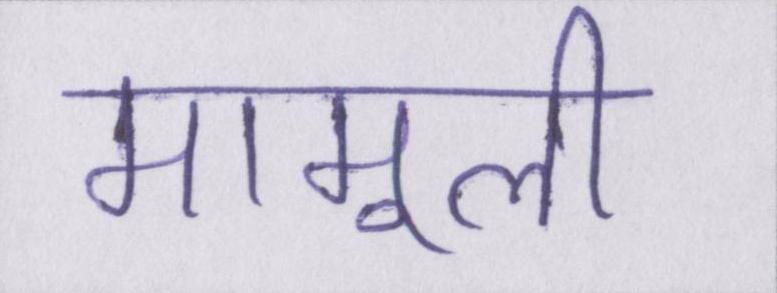 मामूली